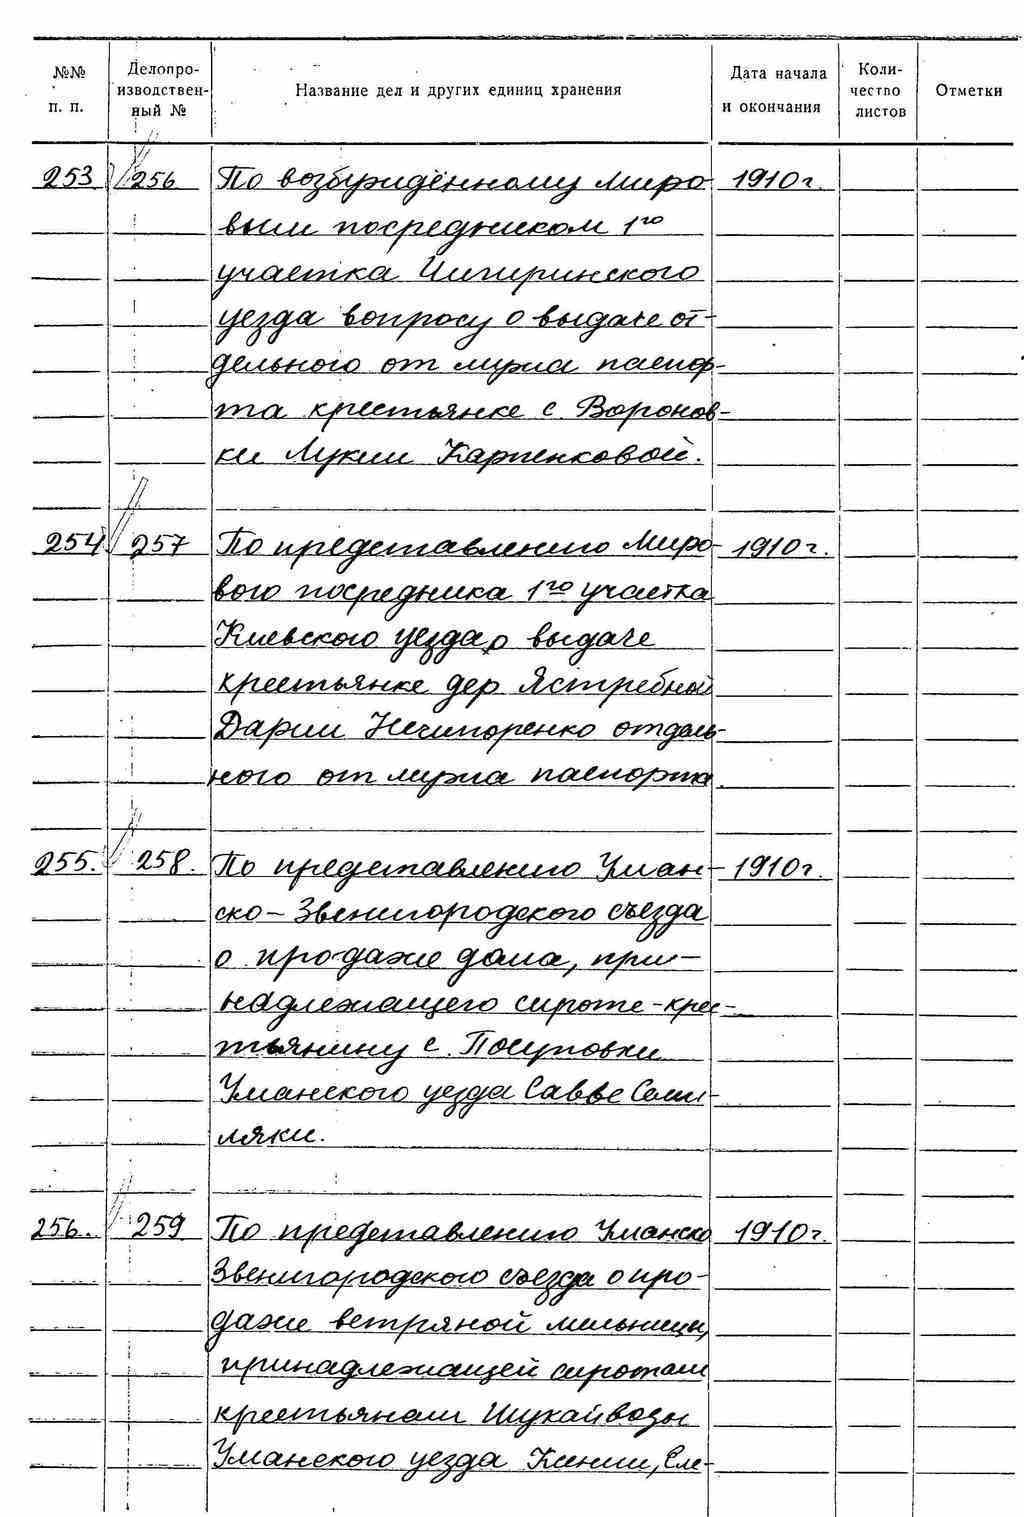 №№ п. п. Делопроизводственный № Название дел и других единиц хранения Дата начала и окончания Количество листов Отметки
253 256 По возбуждённому миро- 1910 г.
вым посредником 1го
участка Чигиринского
уезда вопросу о выдаче от-
дельного от мужа паспор-
та крестьянке с. Воронов-
ки Лукии Карпенковой.
254 257 По представлению Миро- 1910 г.
вого посредника 1го участка
Киевского уезда о выдаче
крестьянке дер Ястребной
Дарии Нечипоренко отдель-
ного от мужа паспорта
255. 258. По представлению Уман- 1910 г.
ско-Звенигородского съезда
о продаже дома, при-
надлежащего сироте-крес-
тьянину с. Посуповки
Уманского уезда Савве Семи-
ляки.
256. 259 По представлению Уманско 1910 г.
Звенигородского съезда о про-
даже ветряной мельницы,
принадлежащей сиротам
крестьянам Шукайводы
Уманского уезда Ксении, Еле-